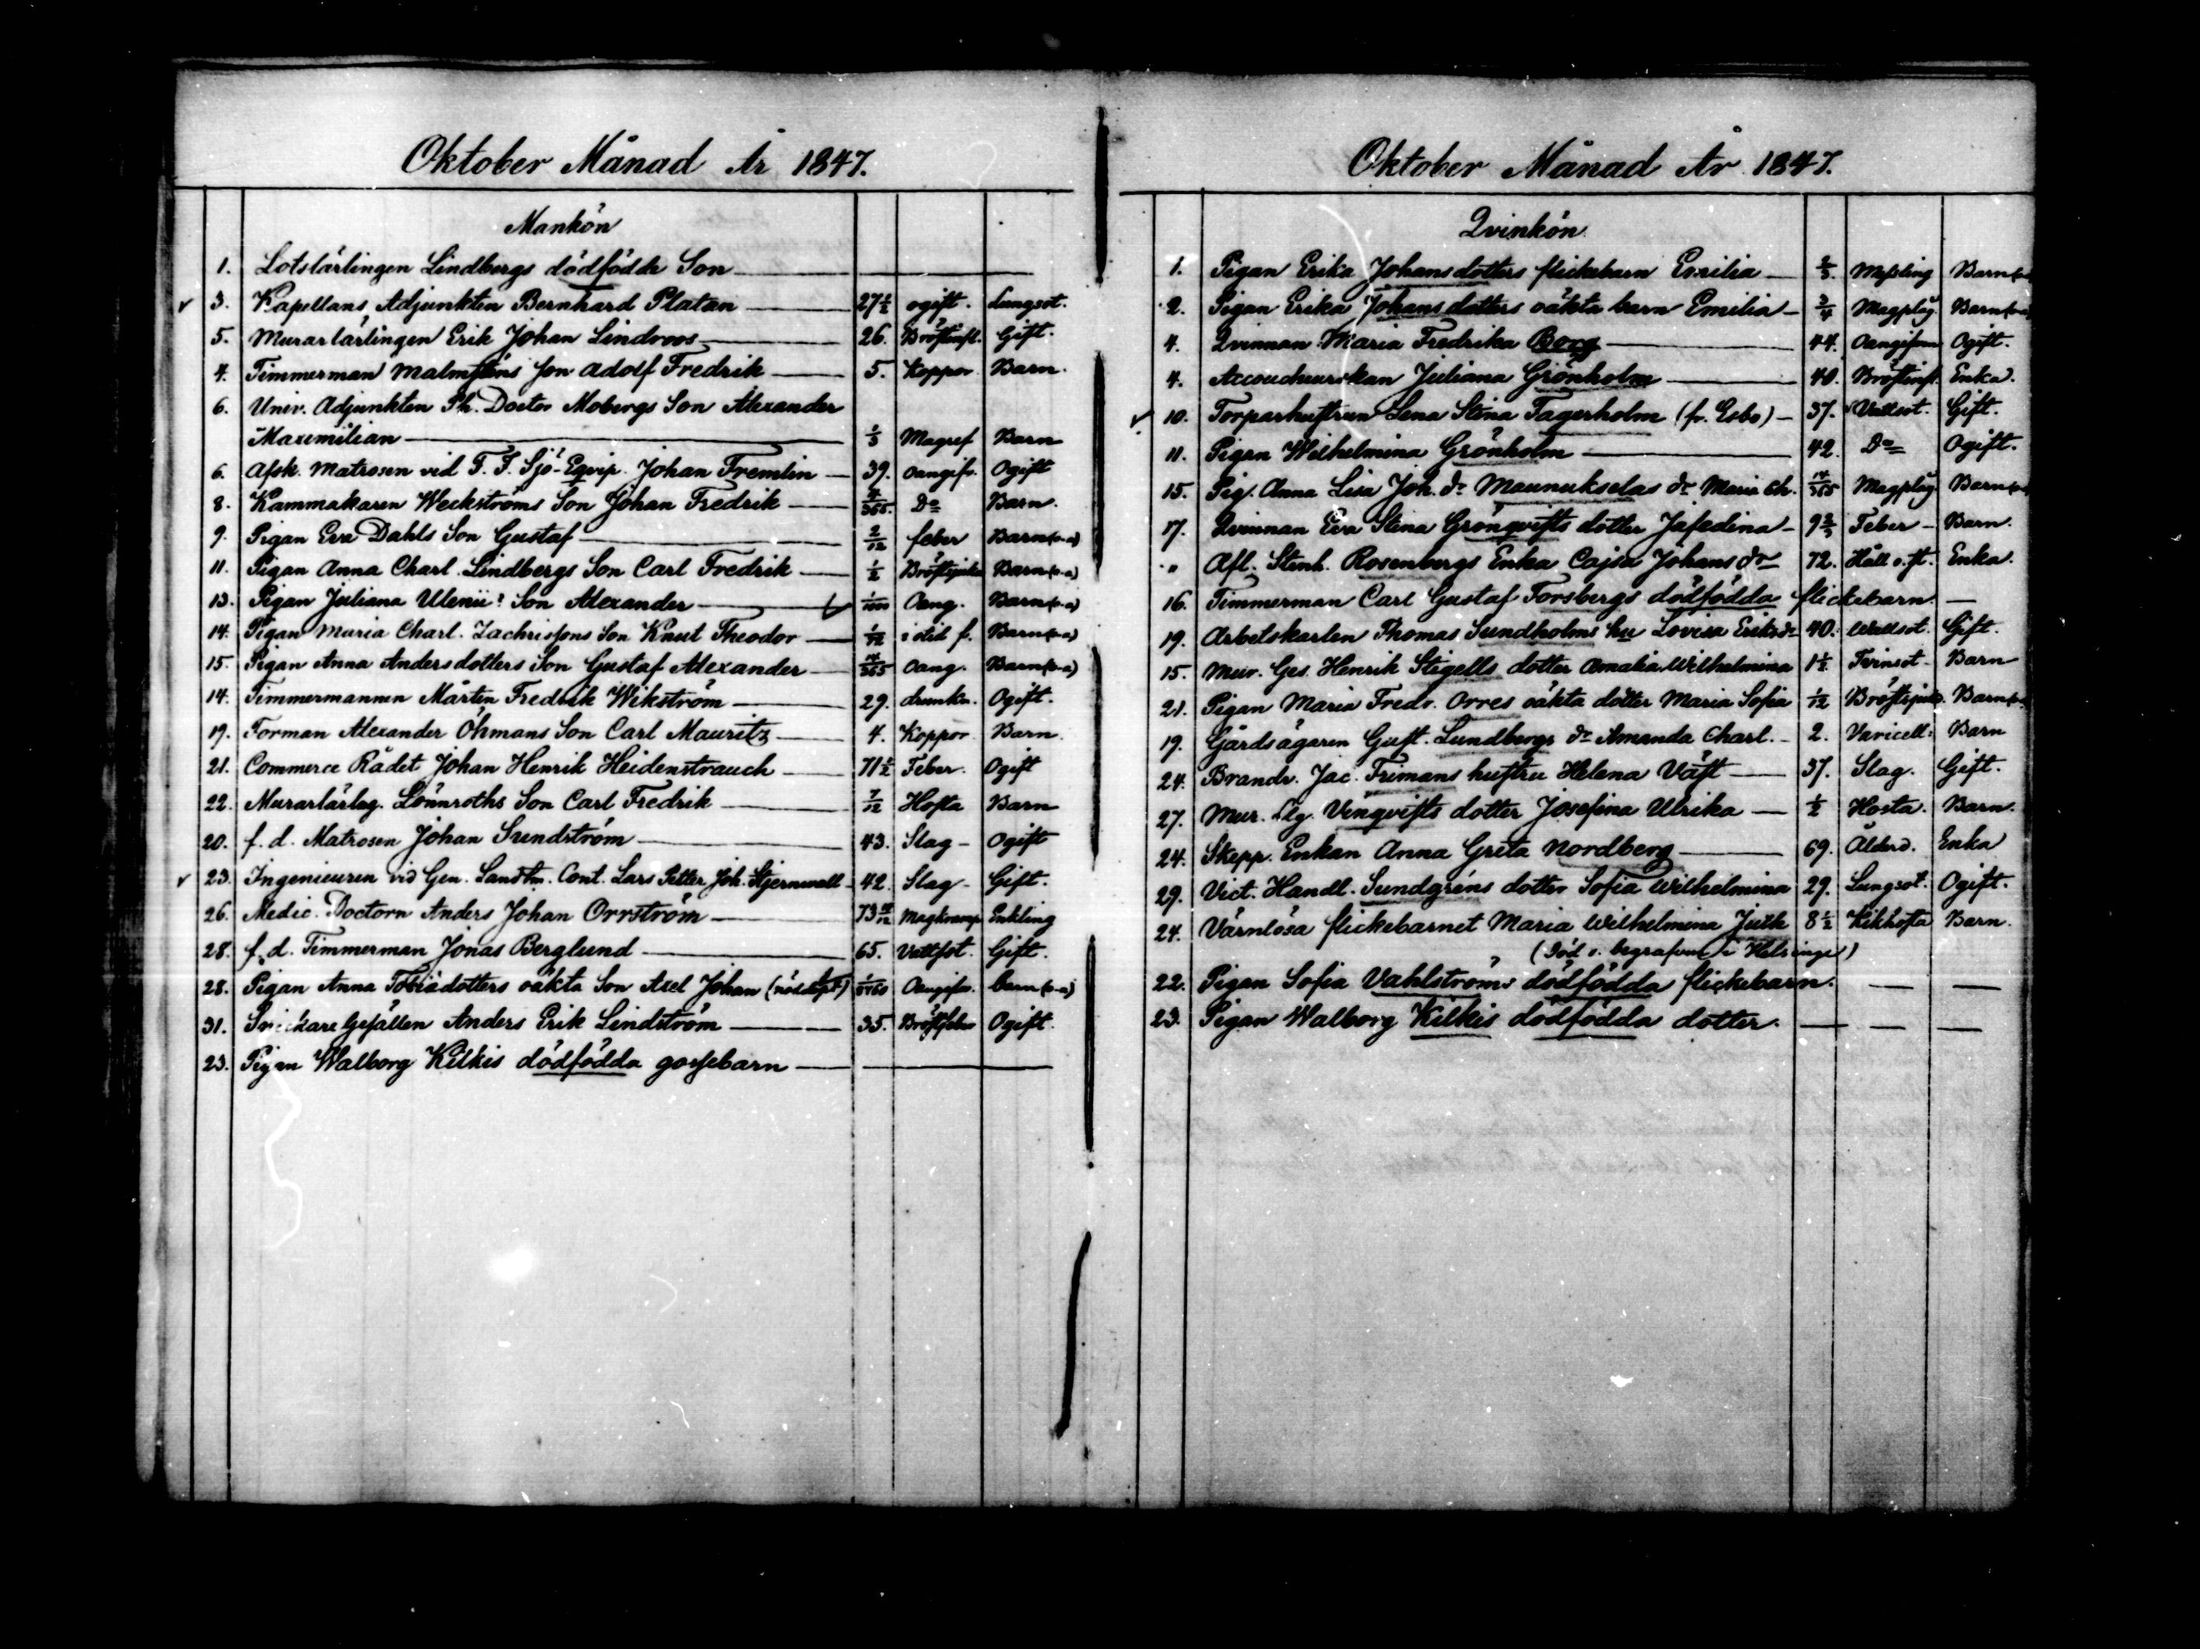 Oktober Månad År 1847.
Mankön
1. Lotslärlingen Lindbergs dödfödde Son
3. Kapellans Adjunkten Bernhard Platan 27 1/2 ogift. Lungsot.
5. Murarlärlingen Erik Johan Lindroos 26. Bröstinfl. Gift.
4. Timmerman Malmströms son Adolf Fredrik 5. Koppor Barn.
6. Univ. Adjunkten Ph. Doctor Mobergs Son Alexander
Maximilian 1/3 Magref Barn
6. Afsk. Matrosen vid F. F. Sjö-Eqvip. Johan Fremlin 39. oangifv. Ogift
8. Kammakaren Weckströms Son Johan Fredrik 4/365. Do Barn.
9. Pigan Eva Dahls Son Gustaf 2/12 feber Barn (o-a)
11. Pigan Anna Charl. Lindbergs Son Carl Fredrik 1/2 Bröstsjuka Barn (o-a)
13. Pigan Juliana Ulenii? Son Alexander Oang. Barn (o-a)
14. Pigan Maria Charl. Zachrissons Son Knut Theodor 1/12 i otid f. Barn (o-a)
15. Pigan Anna Andersdotters Son Gustaf Alexander 14/365 Oang. Barn (o-a)
14. Timmermannen Mårten Fredrik Wikström 29. drunkn. Ogift.
19. Forman Alexander Öhmans Son Carl Mauritz 4. Koppor Barn
21. Commerce Rådet Johan Henrik Heidenstrauch 71 1/2 Feber. Ogift
22. Murarlärlng. Lönnroths Son Carl Fredrik 7/12 Hosta Barn
20. f. d. Matrosen Johan Sundström 43. Slag - Ogift
23. Ingenieuren vid Gen. Landtm. Cont. Lars Petter Joh. Stjernvall 42. Slag - Gift.
26. Medic. Doctorn Anders Johan Orrström 73 Magkramp Enkling
28. f. d. Timmerman Jonas Berglund 65. Vattsot. Gift.
28. Pigan Anna Tobiädotters oäkta Son Axel Johan (nöddöpt) Oangifv. barn (o-a)
31. Snickare Gesällen Anders Erik Lindström 35. Bröstfeber Ogift.
23. Pigan Walborg Kilkis dödfödda gossebarn
Oktober Månad År 1847.
Qvinkön
1. Pigan Erika Johansdotters flickebarn Emilia Messling Barn
2. Pigan Erika Johansdotters oäkta barn Emilia 3/4 Magplåg Barn
4. Qvinnan Maria Fredrika Borg 44. Oangifven Ogift.
4. Accoucheurskan Juliana Grönholm 40. Bröstinfl. Enka.
10. Torparhustrun Lena Stina Fagerholm (fr. Esbo) 37. Vattsot. Gift.
11. Pigan Wilhelmina Grönholm 42. Do Ogift.
15. Pig. Anna Lisa Joh. dr Maunukselas dr Maria Ch. 14/365 Magplåg Barn
17. Qvinnan Eva Stina Grönqvists dotter Jafadina 9 Feber Barn.
" Afl. Stenh. Rosenbergs Enka Cajsa Johans dr 72. Håll o. st. Enka.
16. Timmerman Carl Gustaf Forsbergs dödfödda flickebarn
19. Arbetskarlen Thomas Sundholms hu Lovisa Eriksdr 40. Wattsot. Gift.
15. Mur. Ges. Henrik Stigells dotter Amalia Wilhelmina 1 1/2 Tvinsot Barn
21. Pigan Maria Fredr. Orres oäkta dotter Maria Sofia 1/12 Bröstsjuk. Barn
19. Gårdsägaren Gust. Lundbergs dr Amanda Charl. 2. Varicell: Barn
24. Brandv. Jac. Frimans hustru Helena Väst 37. Slag. Gift.
27. Mur. Lg. Vinqvists dotter Josefina Ulrika 1/2 Hosta. Barn.
24. Skepp. Enkan Anna Greta Nordberg 69. Ålderd. Enka
29. Vict. Handl. Sundgréns dotter Sofia Wilhelmina 29. Lungsot. Ogift.
24. Värnlösa flickebarnet Maria Wilhelmina 8 1/2 Kikhosta Barn.
(Död o. begrafven i Helsinge)
22. Pigan Sofia Vahlströms dödfödda flickebarn.
23. Pigan Walborg Kilkis dödfödda dotter.